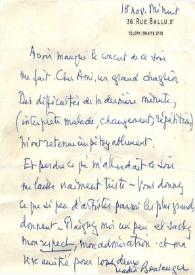 18 nov. Minuit
36, RUE BALLU. 9e
Avoir manqué le concert de ce soir
me fait, Cher Ami, un grand chagrin
Des difficultés de la dernière minute,
(interprète malade, changement, répétition)
m'ont retenue impitoyablement.
Et perdre ce qui m'attendait ce soir
me laisse vraiment triste - Vous donnez
ce que si peu d'artistes parmi les plus grands
donnent - Plaignez moi un peu et sachez
mon respect, mon admiration et ma
vive amitié pour vous deux
Nadia Boulanger